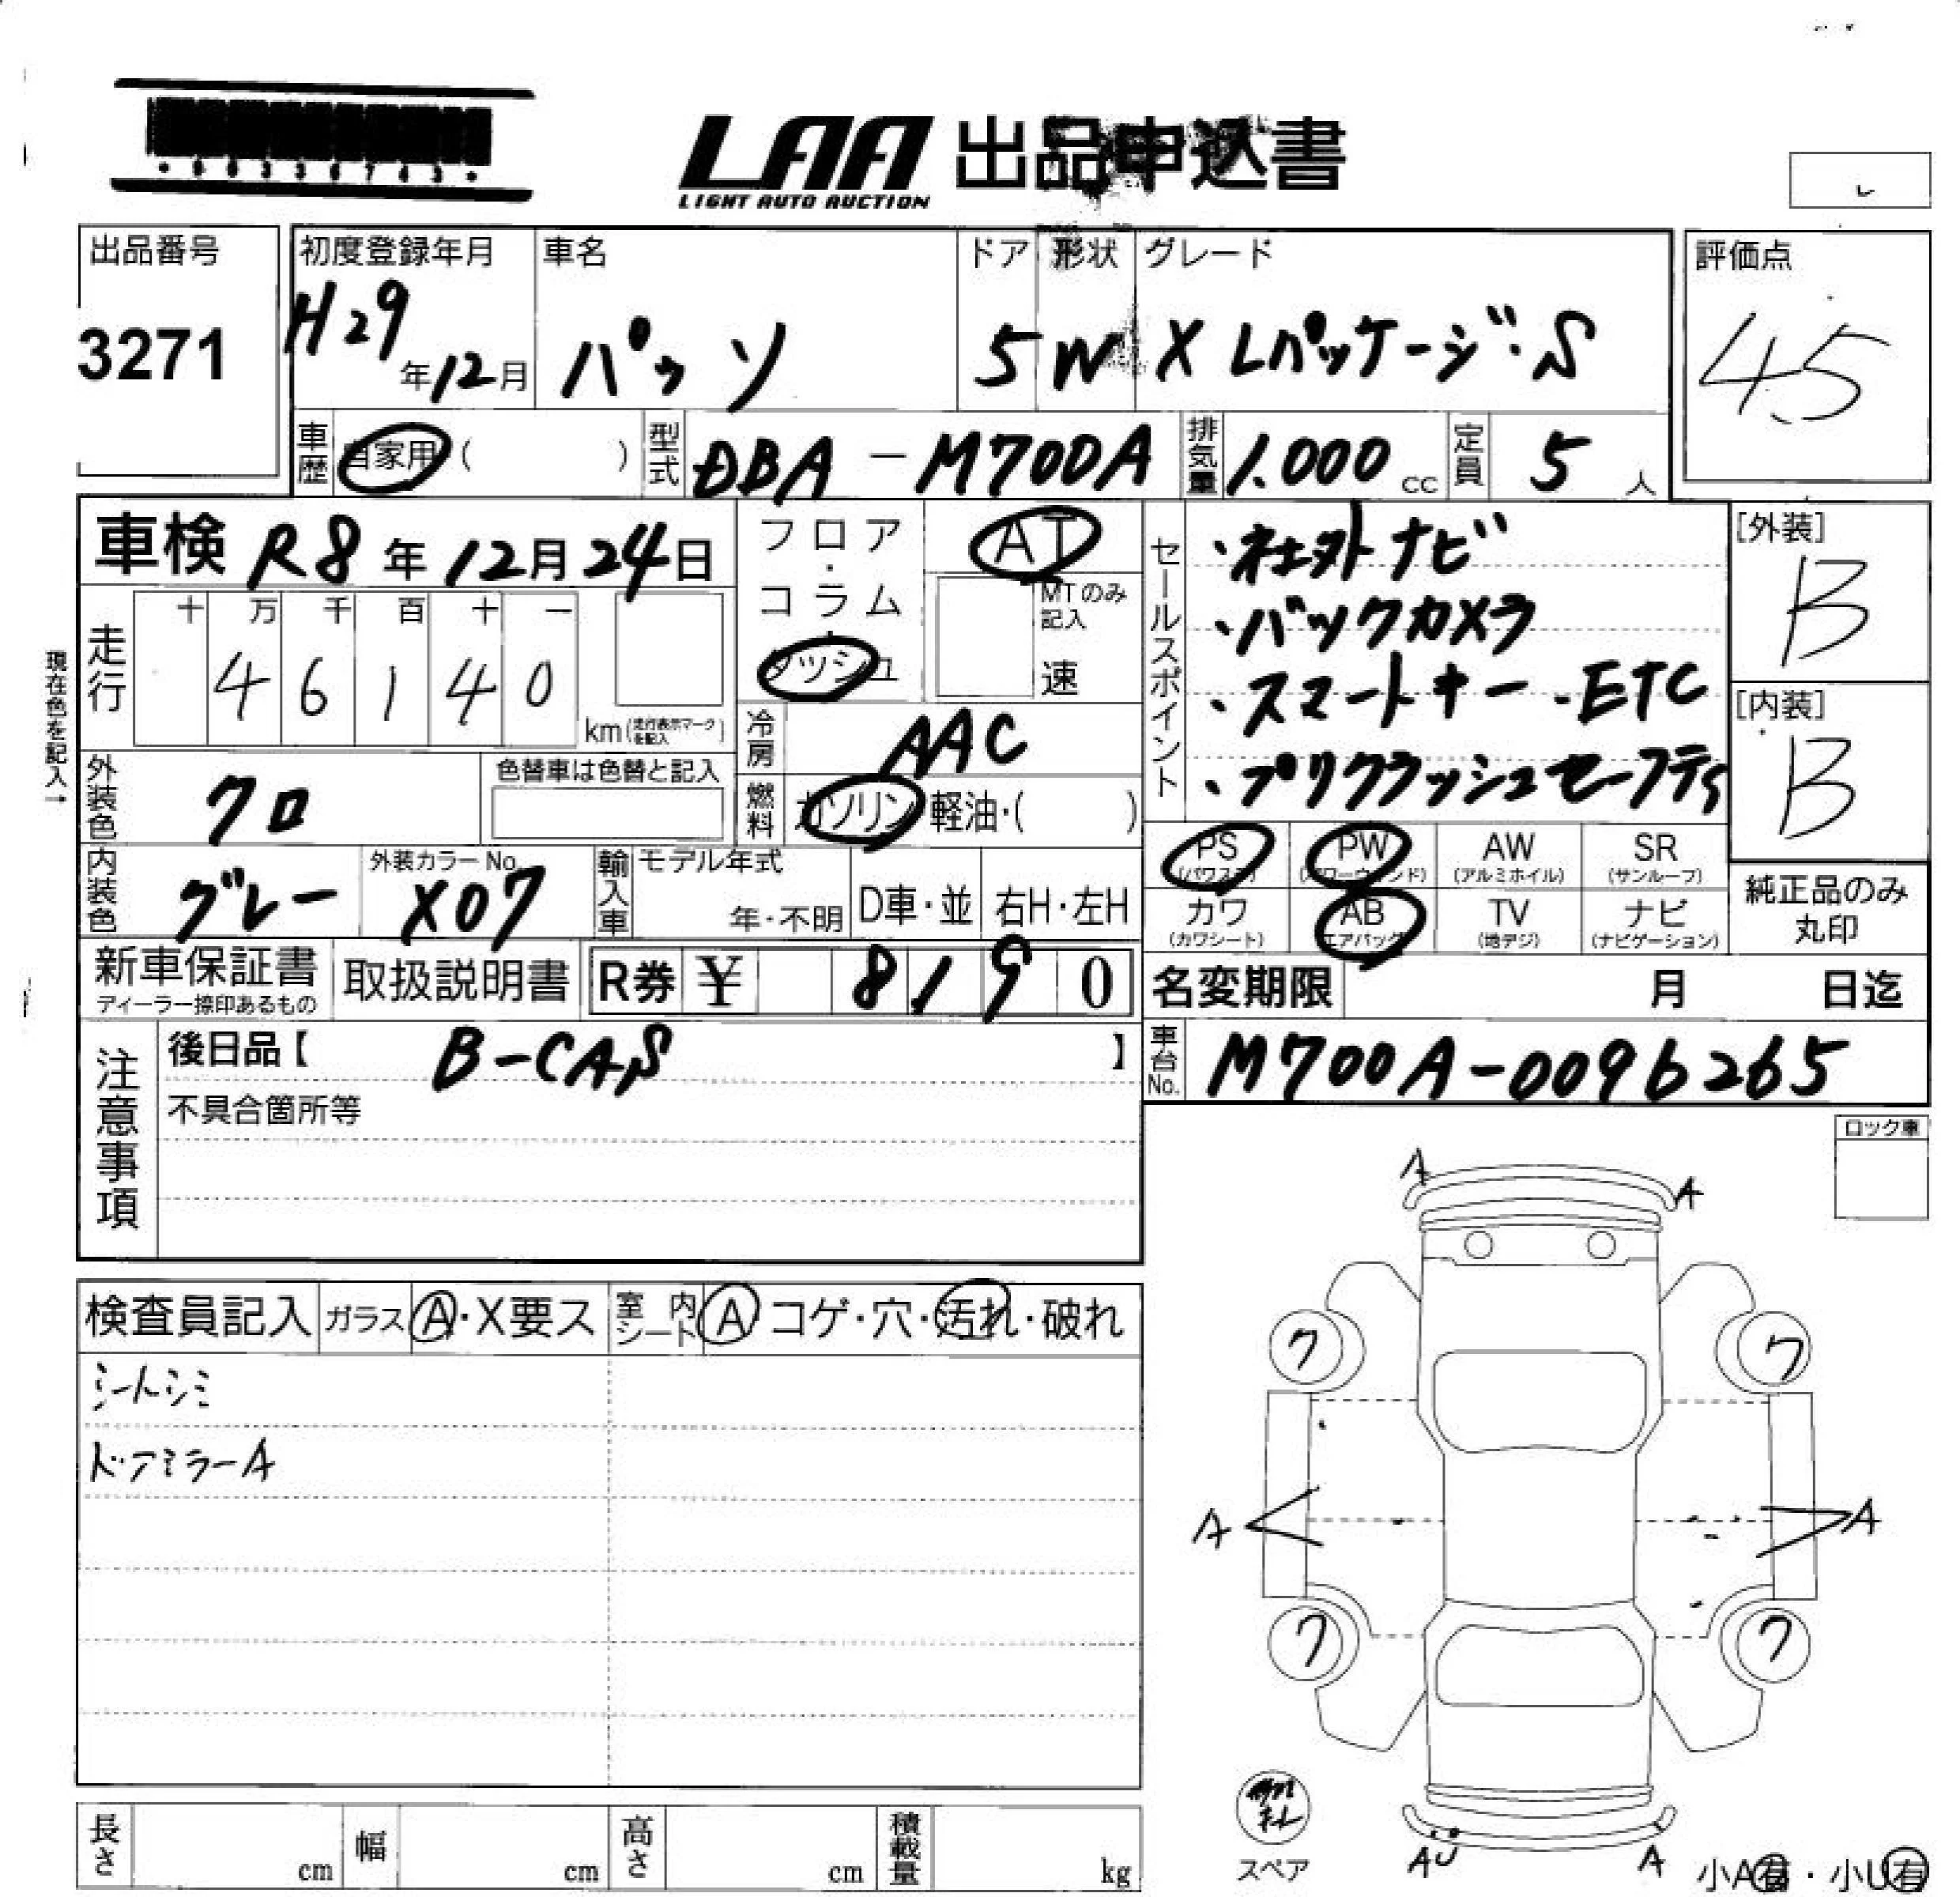 LAA 出品申込書
LIGHT AUTO AUCTION
出品番号
3271
初度登録年月
H29年12月
車名
パッソ
ドア
5
形状
W
グレード
X Lパッケージ・S
評価点
4.5
車歴 自家用( )
型式 DBA-M700A
排気量 1.000cc
定員 5人
車検 R8年12月24日
フロア・コラム・ダッシュ
AT
MTのみ記入
速
セールスポイント
・社外ナビ
・バックカメラ
・スマートキー ・ETC
・プリクラッシュセーフティS
[外装]
B
[内装]
B
現在色を記入→
走行
十 万 千 百 十 一
4 6 1 4 0
km(走行表示マークを記入)
冷房 AAC
外装色 クロ
色替車は色替と記入
燃料 ガソリン・軽油・( )
内装色 グレー
外装カラーNo.
X07
輸入車
モデル年式
年・不明
D車・並
右H・左H
PS
(パワステ)
PW
(パワーウインド)
AW
(アルミホイル)
SR
(サンルーフ)
カワ
(カワシート)
AB
(エアバッグ)
TV
(地デジ)
ナビ
(ナビゲーション)
純正品のみ
丸印
新車保証書
ディーラー捺印あるもの
取扱説明書
R券 ¥ 8190
名変期限 月 日迄
注意事項
後日品【 B-CAS 】
不具合箇所等
車台No. M700A-0096265
ロック車
検査員記入
ガラス A・X要ス
室内シート A コゲ・穴・汚れ・破れ
シートシミ
ドアミラーA
A
A
ワ
ワ
A
A
ワ
ワ
スペア
AU
A
小A有・小U有
長さ cm
幅 cm
高さ cm
積載量 kg